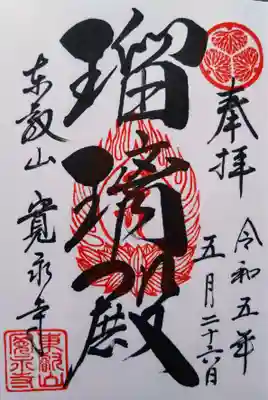 奉拝
令和五年
五月二十六日
瑠璃殿
東叡山
寛永寺
東叡山
寛永寺